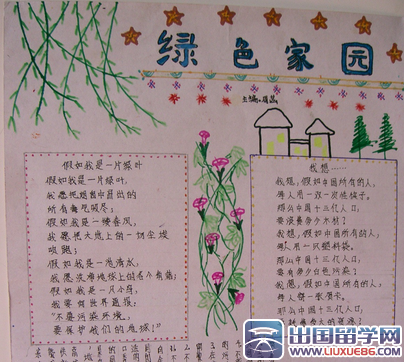 绿色家园
主编：
假如我是一片绿叶
假如我是一片绿叶，
我愿把烟囱中冒出的
所有毒气吸尽；
假如我是一缕春风，
我愿把大地上的一切尘埃
吹跑；
假如我是一泓清水，
我愿洗涤地球上的各个角落；
假如我是一只小鸟，
我要向世界通报：
“不要污染环境，
要保护我们的地球！”
我想……
我想，假如中国所有的人，
每人用一双一次性筷子。
那么中国十三亿人口，
要浪费多少木材？
我想，假如中国所有的人，
每人用一只塑料袋。
那么中国十三亿人口，
要有多少白色污染？
我想，假如中国所有的人，
每人寄一张贺卡。
那么中国十三亿人口，
出国留学网
www.liuxue86.com